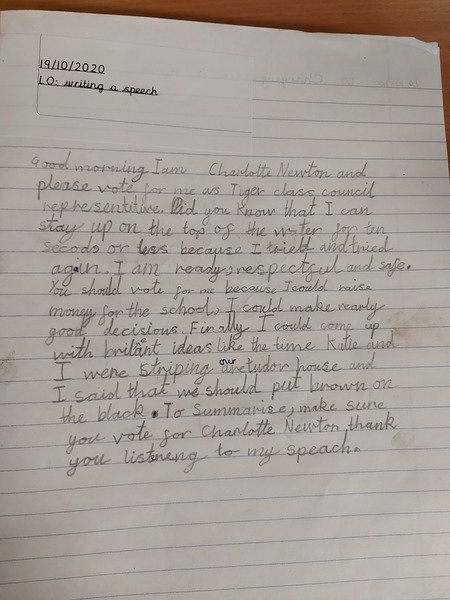 19/10/2020
LO: writing a speech
Good morning I am Charlotte Newton and
please vote for me as Tiger class council
representitive. Did you know that I can
stay up on the top of the water for ten
secods or less because I tried and tried
again. I am ready, respectful and safe.
You should vote for me because I could raise
money for the school, I could make rearly
good decisions. Finally I could come up
with brilant ideas like the time Katie and
I were striping our tudor house and
I said that we should put brown on
the black. To summarise, make sure
you vote for Charlotte Newton thank
you listneng to my speach.